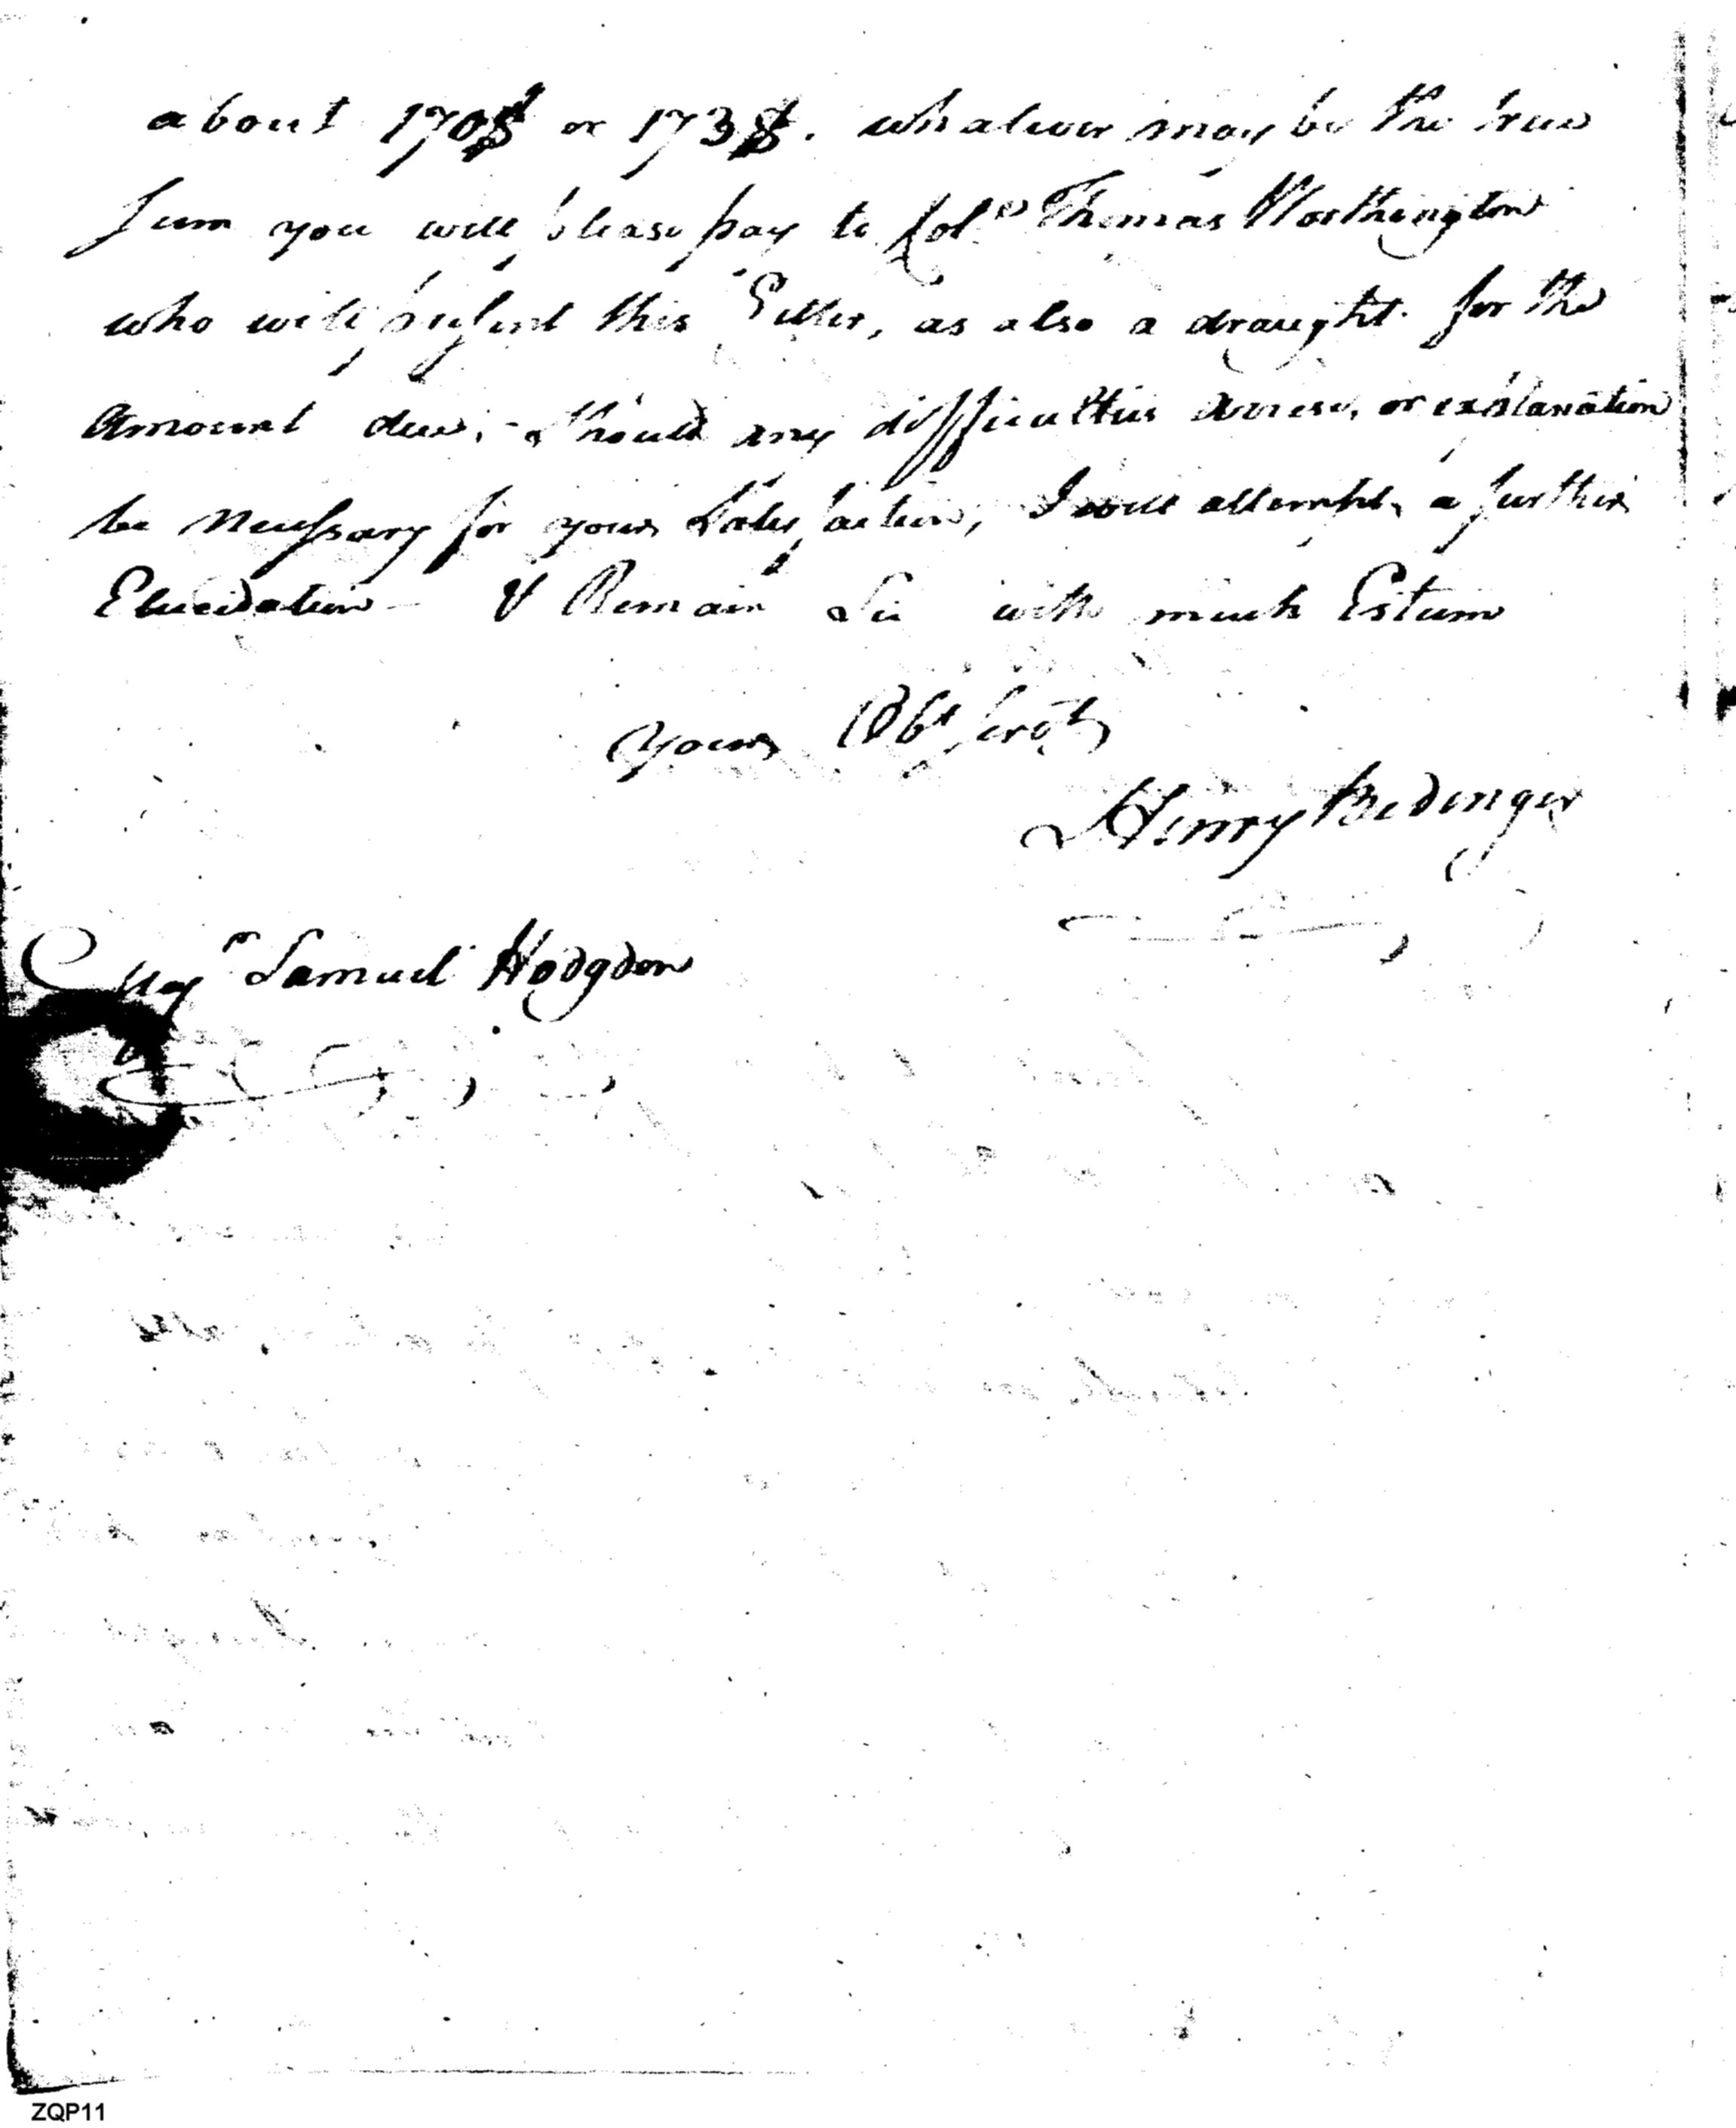 about 170$ or 173$. whatever may be the true
Sum you will please pay to Col.o Thomas Worthington
who will present this Letter, as also a draught for the
Amount due, - Should any difficulties arrise, or explanation
be necessary for your Satisfaction, I will attempt a further
Elucidation - & Remain Sir with much Esteem
Your Obt Servt
Henry Bedinger
Majr Samuel Hodgdon
ZQP11